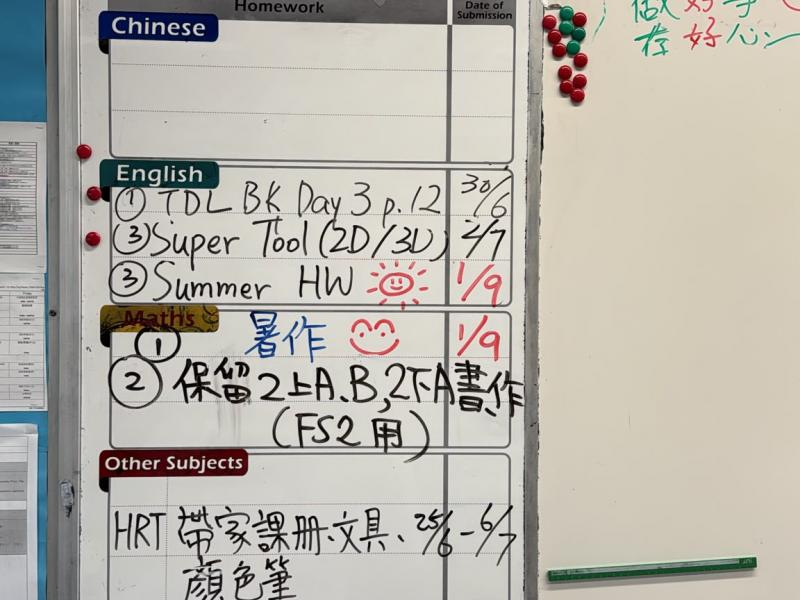 Homework Date of Submission
Chinese
做好手
存好心
English
① TDL BK Day 3 p.12 30/6
③ Super Tool (2D/3D) 2/7
③ Summer HW 1/9
Maths
① 暑作 1/9
② 保留2上A、B,2下A書、作
(FS2用)
Other Subjects
HRT 帶家課冊、文具、25/6-6/7
顏色筆